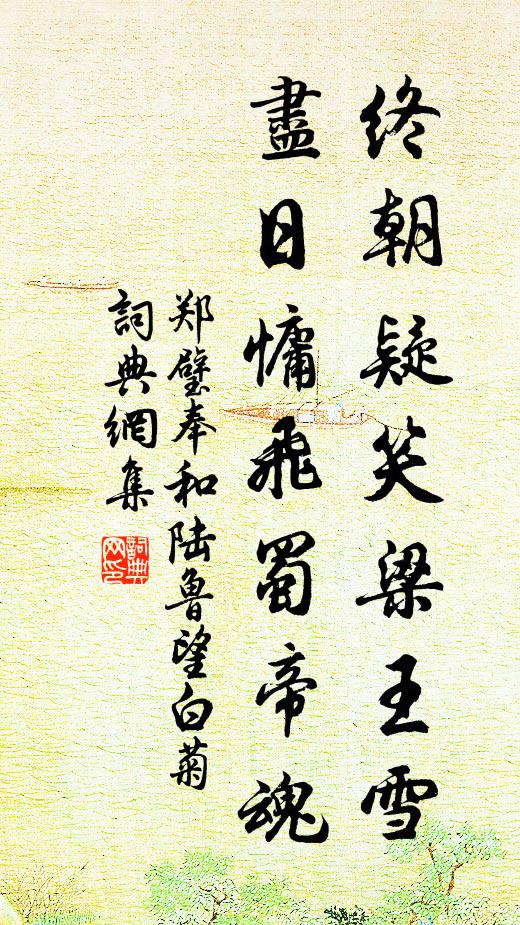 终朝疑笑梁王雪
盡日慵飛蜀帝魂
郑璧奉和陆鲁望白菊
詞典網集
詞典网印